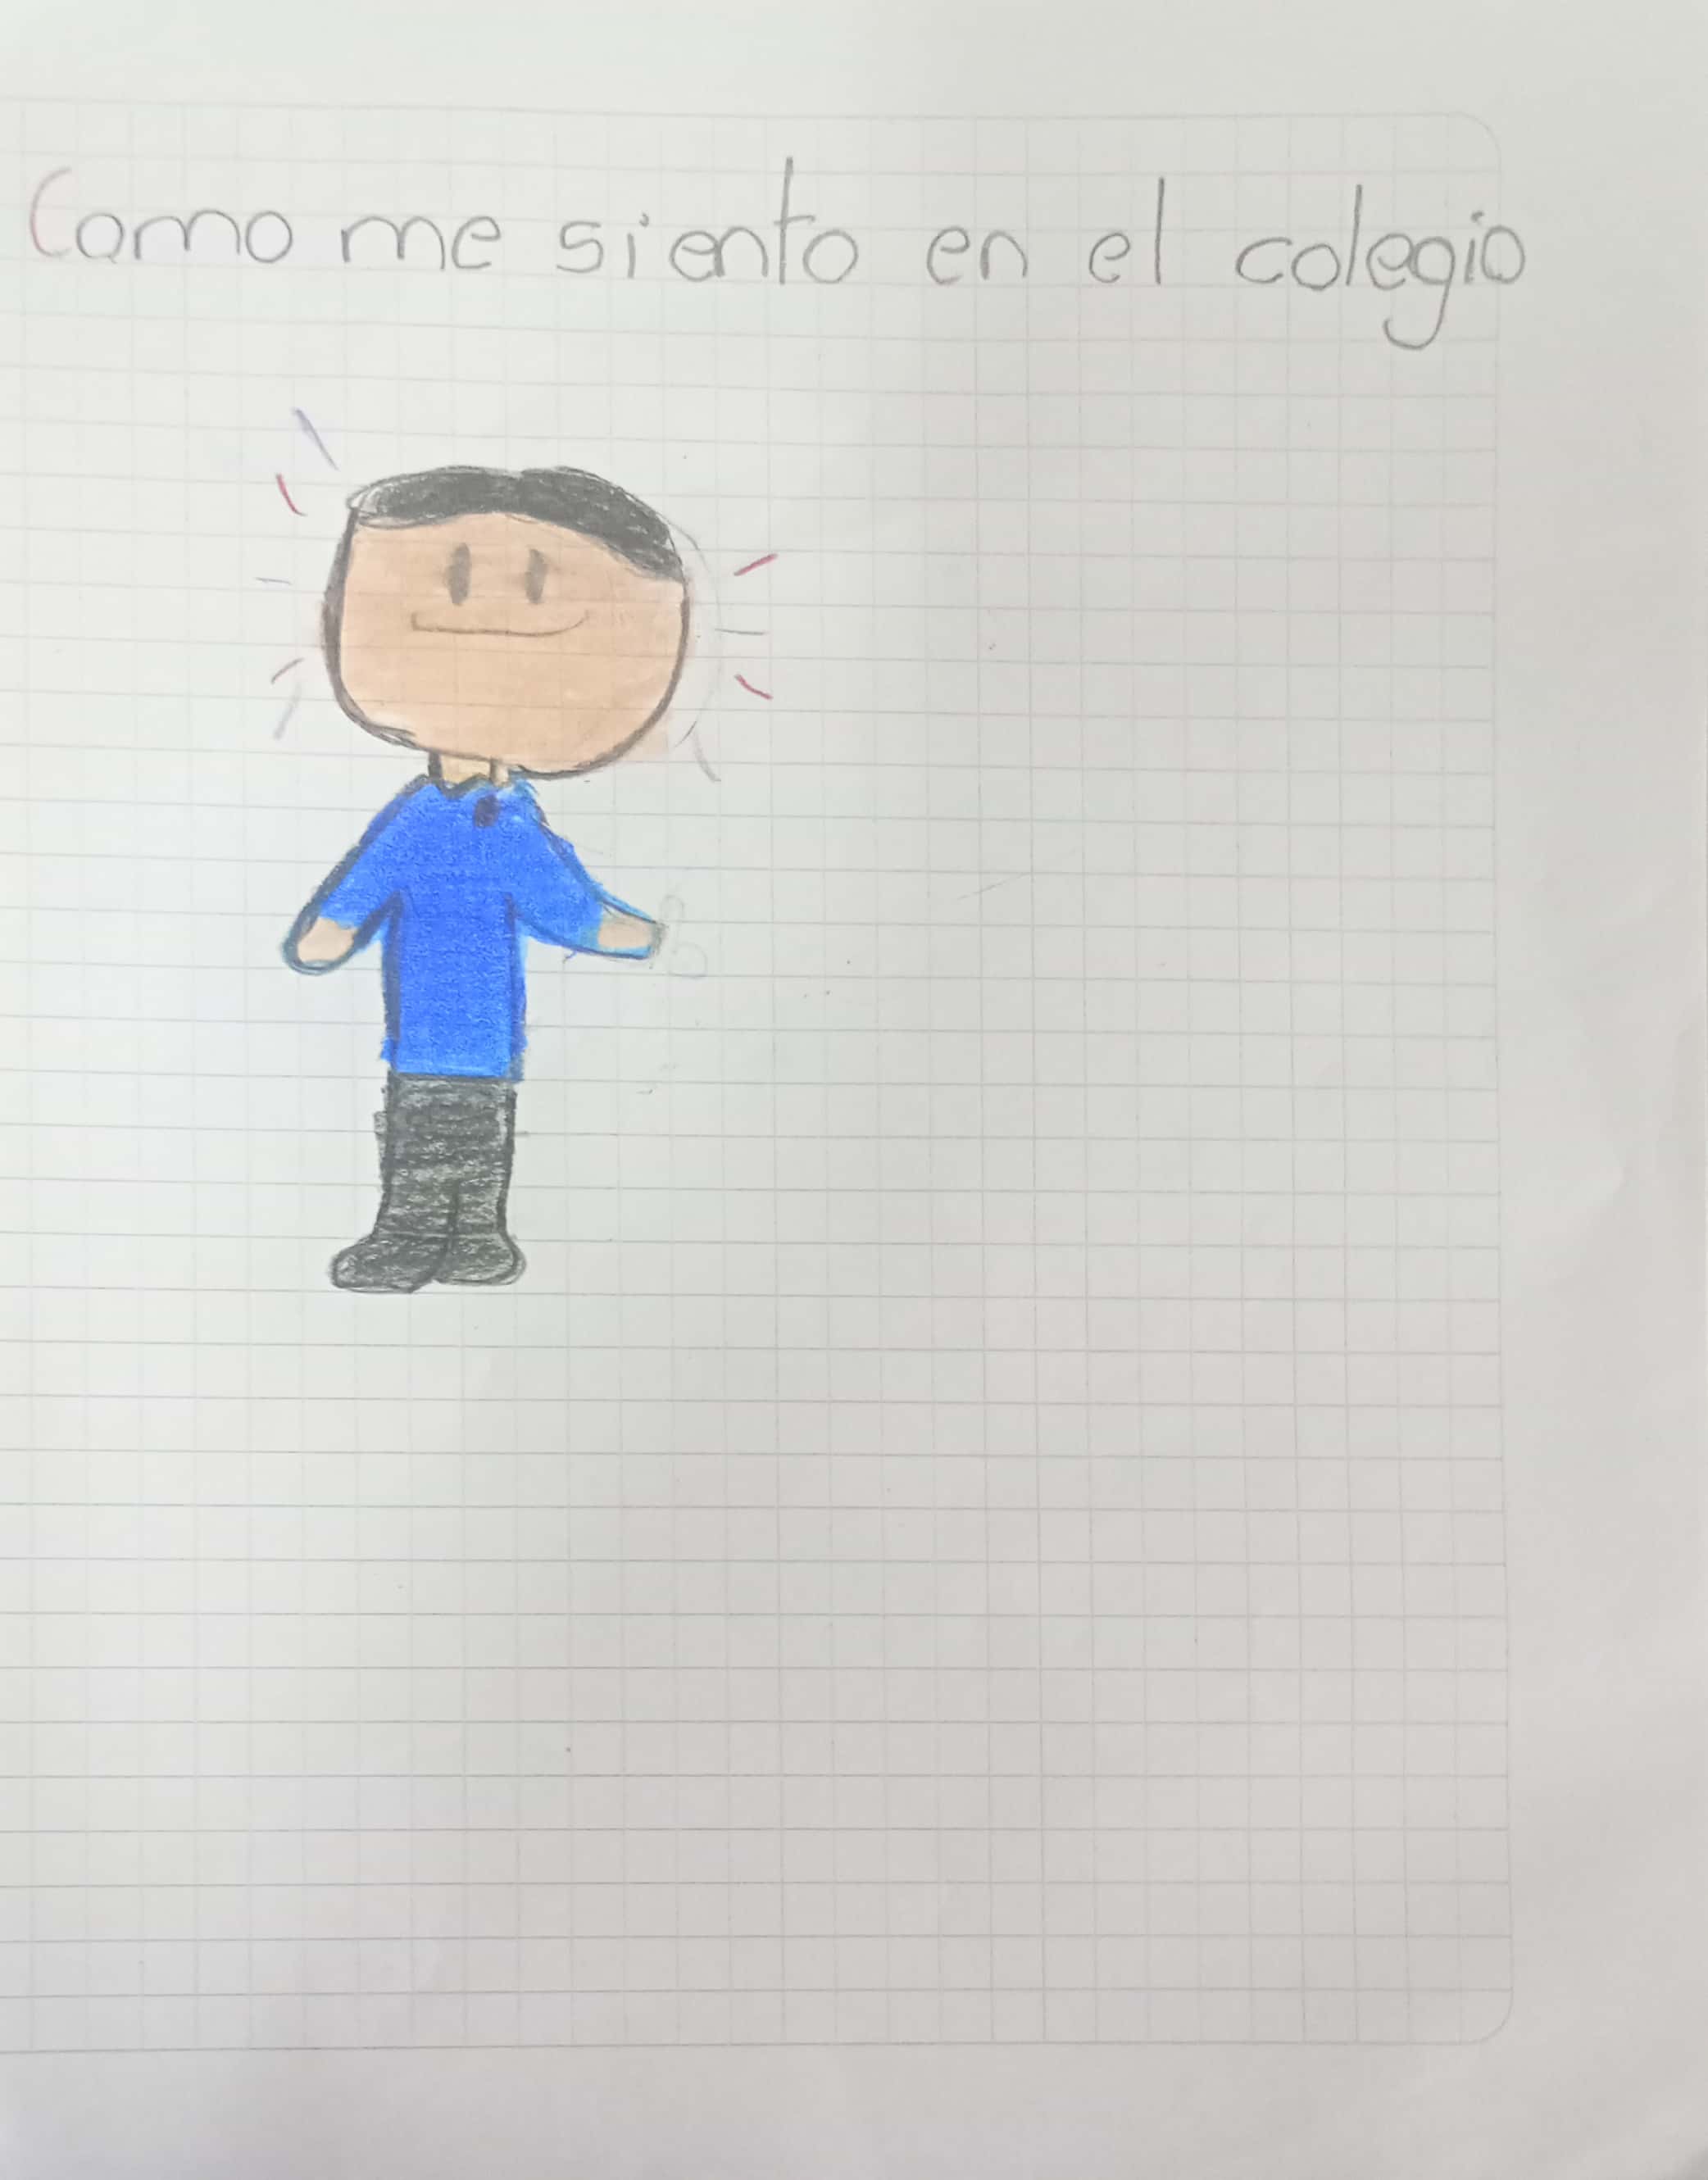 Como me siento en el colegio